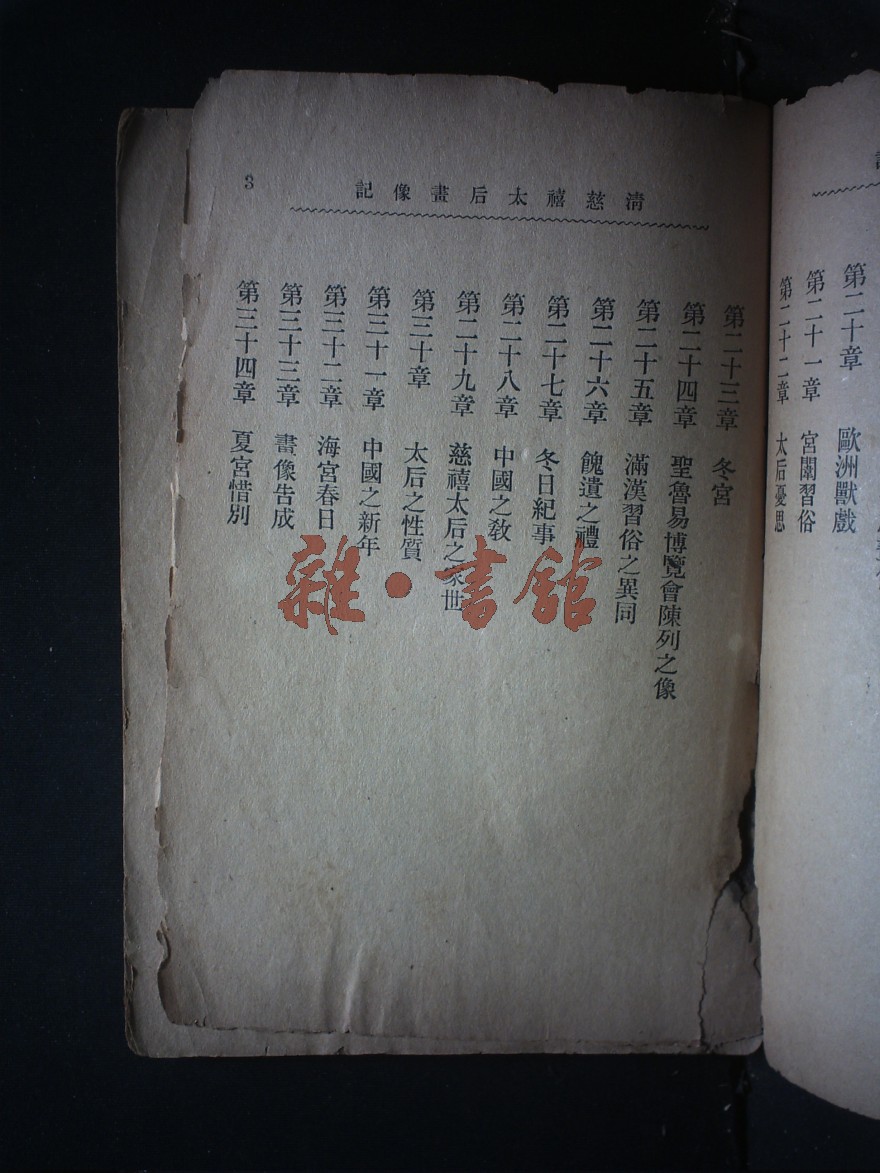 第二十章　歐洲獸戲
第二十一章　宮闈習俗
第二十二章　太后憂思
清慈禧太后畫像記
3
第二十三章　冬宮
第二十四章　聖魯易博覽會陳列之像
第二十五章　滿漢習俗之異同
第二十六章　餽遺之禮
第二十七章　冬日紀事
第二十八章　中國之教
第二十九章　慈禧太后之家世
第三十章　太后之性質
第三十一章　中國之新年
第三十二章　海宮春日
第三十三章　畫像告成
第三十四章　夏宮惜別
雜·書館